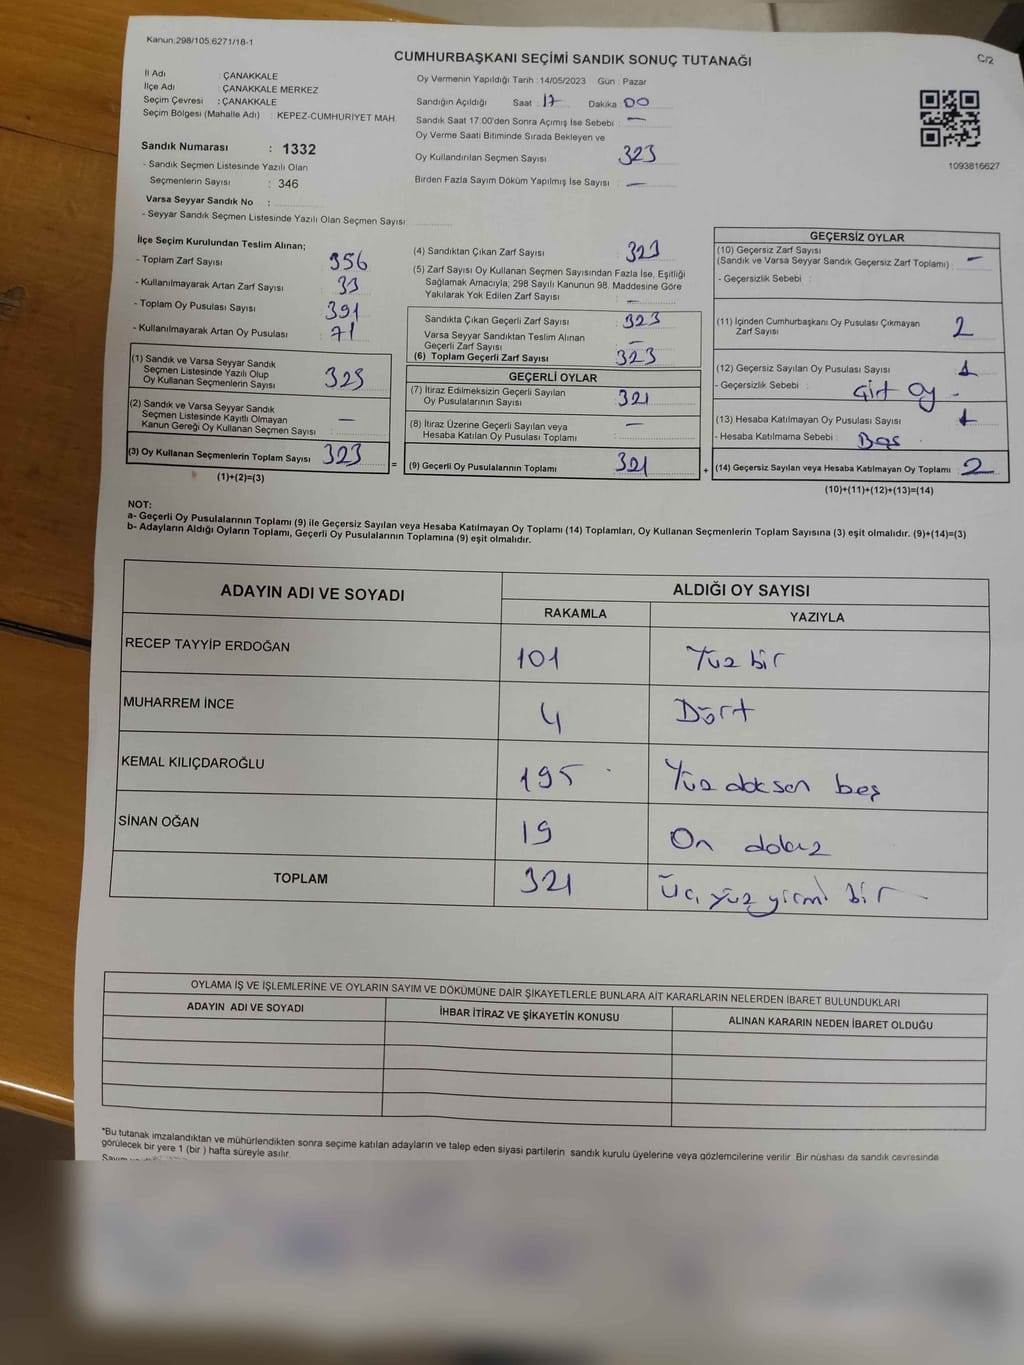 Kanun:298/105;6271/18-1
C/2
CUMHURBAŞKANI SEÇİMİ SANDIK SONUÇ TUTANAĞI
İl Adı : ÇANAKKALE
İlçe Adı : ÇANAKKALE MERKEZ
Seçim Çevresi : ÇANAKKALE
Seçim Bölgesi (Mahalle Adı) : KEPEZ-CUMHURİYET MAH.
Sandık Numarası : 1332
- Sandık Seçmen Listesinde Yazılı Olan
Seçmenlerin Sayısı : 346
Varsa Seyyar Sandık No :
- Seyyar Sandık Seçmen Listesinde Yazılı Olan Seçmen Sayısı:
Oy Vermenin Yapıldığı Tarih : 14/05/2023 Gün : Pazar
Sandığın Açıldığı Saat : 17 Dakika : 00
Sandık Saat 17:00'den Sonra Açımış İse Sebebi : —
Oy Verme Saati Bitiminde Sırada Bekleyen ve
Oy Kullandırılan Seçmen Sayısı 323
Birden Fazla Sayım Döküm Yapılmış İse Sayısı : —
1093816627
İlçe Seçim Kurulundan Teslim Alınan;
- Toplam Zarf Sayısı : 356
- Kullanılmayarak Artan Zarf Sayısı : 33
- Toplam Oy Pusulası Sayısı : 391
- Kullanılmayarak Artan Oy Pusulası : 71
(1) Sandık ve Varsa Seyyar Sandık
Seçmen Listesinde Yazılı Olup
Oy Kullanan Seçmenlerin Sayısı : 323
(2) Sandık ve Varsa Seyyar Sandık
Seçmen Listesinde Kayıtlı Olmayan
Kanun Gereği Oy Kullanan Seçmen Sayısı : —
(3) Oy Kullanan Seçmenlerin Toplam Sayısı 323
(1)+(2)=(3)
(4) Sandıktan Çıkan Zarf Sayısı : 323
(5) Zarf Sayısı Oy Kullanan Seçmen Sayısından Fazla İse, Eşitliği
Sağlamak Amacıyla; 298 Sayılı Kanunun 98. Maddesine Göre
Yakılarak Yok Edilen Zarf Sayısı : —
Sandıkta Çıkan Geçerli Zarf Sayısı : 323
Varsa Seyyar Sandıktan Teslim Alınan
Geçerli Zarf Sayısı : —
(6) Toplam Geçerli Zarf Sayısı : 323
GEÇERLİ OYLAR
(7) İtiraz Edilmeksizin Geçerli Sayılan
Oy Pusulalarının Sayısı : 321
(8) İtiraz Üzerine Geçerli Sayılan veya
Hesaba Katılan Oy Pusulası Toplamı : —
= (9) Geçerli Oy Pusulalarının Toplamı : 321 +
GEÇERSİZ OYLAR
(10) Geçersiz Zarf Sayısı
(Sandık ve Varsa Seyyar Sandık Geçersiz Zarf Toplamı) : —
- Geçersizlik Sebebi :
(11) İçinden Cumhurbaşkanı Oy Pusulası Çıkmayan
Zarf Sayısı : 2
(12) Geçersiz Sayılan Oy Pusulası Sayısı : 1
- Geçersizlik Sebebi : Çift Oy
(13) Hesaba Katılmayan Oy Pusulası Sayısı : 1
- Hesaba Katılmama Sebebi : Boş
(14) Geçersiz Sayılan veya Hesaba Katılmayan Oy Toplamı : 2
(10)+(11)+(12)+(13)=(14)
NOT:
a- Geçerli Oy Pusulalarının Toplamı (9) ile Geçersiz Sayılan veya Hesaba Katılmayan Oy Toplamı (14) Toplamları, Oy Kullanan Seçmenlerin Toplam Sayısına (3) eşit olmalıdır. (9)+(14)=(3)
b- Adayların Aldığı Oyların Toplamı, Geçerli Oy Pusulalarının Toplamına (9) eşit olmalıdır.
ADAYIN ADI VE SOYADI
ALDIĞI OY SAYISI
RAKAMLA YAZIYLA
RECEP TAYYİP ERDOĞAN 101 Yüz bir
MUHARREM İNCE 4 Dört
KEMAL KILIÇDAROĞLU 195 Yüz doksan beş
SİNAN OĞAN 19 On dokuz
TOPLAM 321 Üç yüz yirmi bir
OYLAMA İŞ VE İŞLEMLERİNE VE OYLARIN SAYIM VE DÖKÜMÜNE DAİR ŞİKAYETLERLE BUNLARA AİT KARARLARIN NELERDEN İBARET BULUNDUKLARI
ADAYIN ADI VE SOYADI İHBAR İTİRAZ VE ŞİKAYETİN KONUSU ALINAN KARARIN NEDEN İBARET OLDUĞU
*Bu tutanak imzalandıktan ve mühürlendikten sonra seçime katılan adayların ve talep eden siyasi partilerin sandık kurulu üyelerine veya gözlemcilerine verilir. Bir nüshası da sandık çevresinde
görülecek bir yere 1 (bir) hafta süreyle asılır.